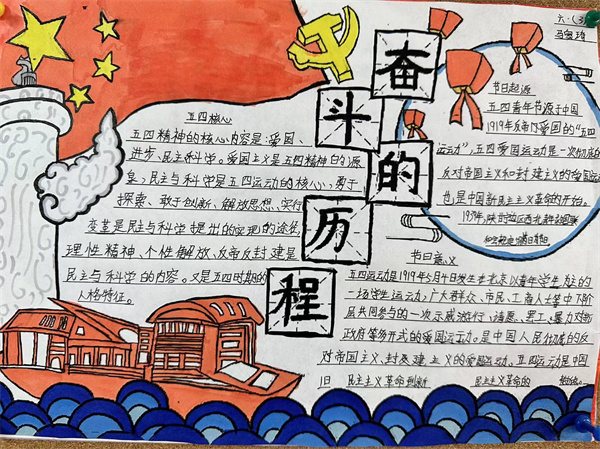 六·(3)
奋斗的历程
五四核心
五四精神的核心内容是:爱国、
进步、民主科学。爱国主义是五四精神的源
皇,民主与科学是五四运动的核心,勇于
探索、敢于创新、解放思想、实行
变革是民主与科学提出的实现的途径,
理性精神、个性解放、反帝反封建是
民主与科学的内容。又是五四时期的
人格特征。
节日起源
五四青年节源于中国
1919年反帝爱国的"五四
运动",五四爱国运动是一次彻底的
反对帝国主义和封建主义的爱国运动
也是中国新民主主义革命的开始。
1939年,陕甘宁边区西北青年救国联
节日意义
五四运动是1919年5月4日发生在北京以青年学生为主的
一场学生运动,广大群众、市民、工商人士等中下阶
层共同参与的一次示威游行、请愿、罢工、暴力对抗
政府等多形式的爱国运动。是中国人民彻底的反
对帝国主义、封建主义的爱国运动、五四运动是中国
旧 民主主义革命到新 民主主义革命的